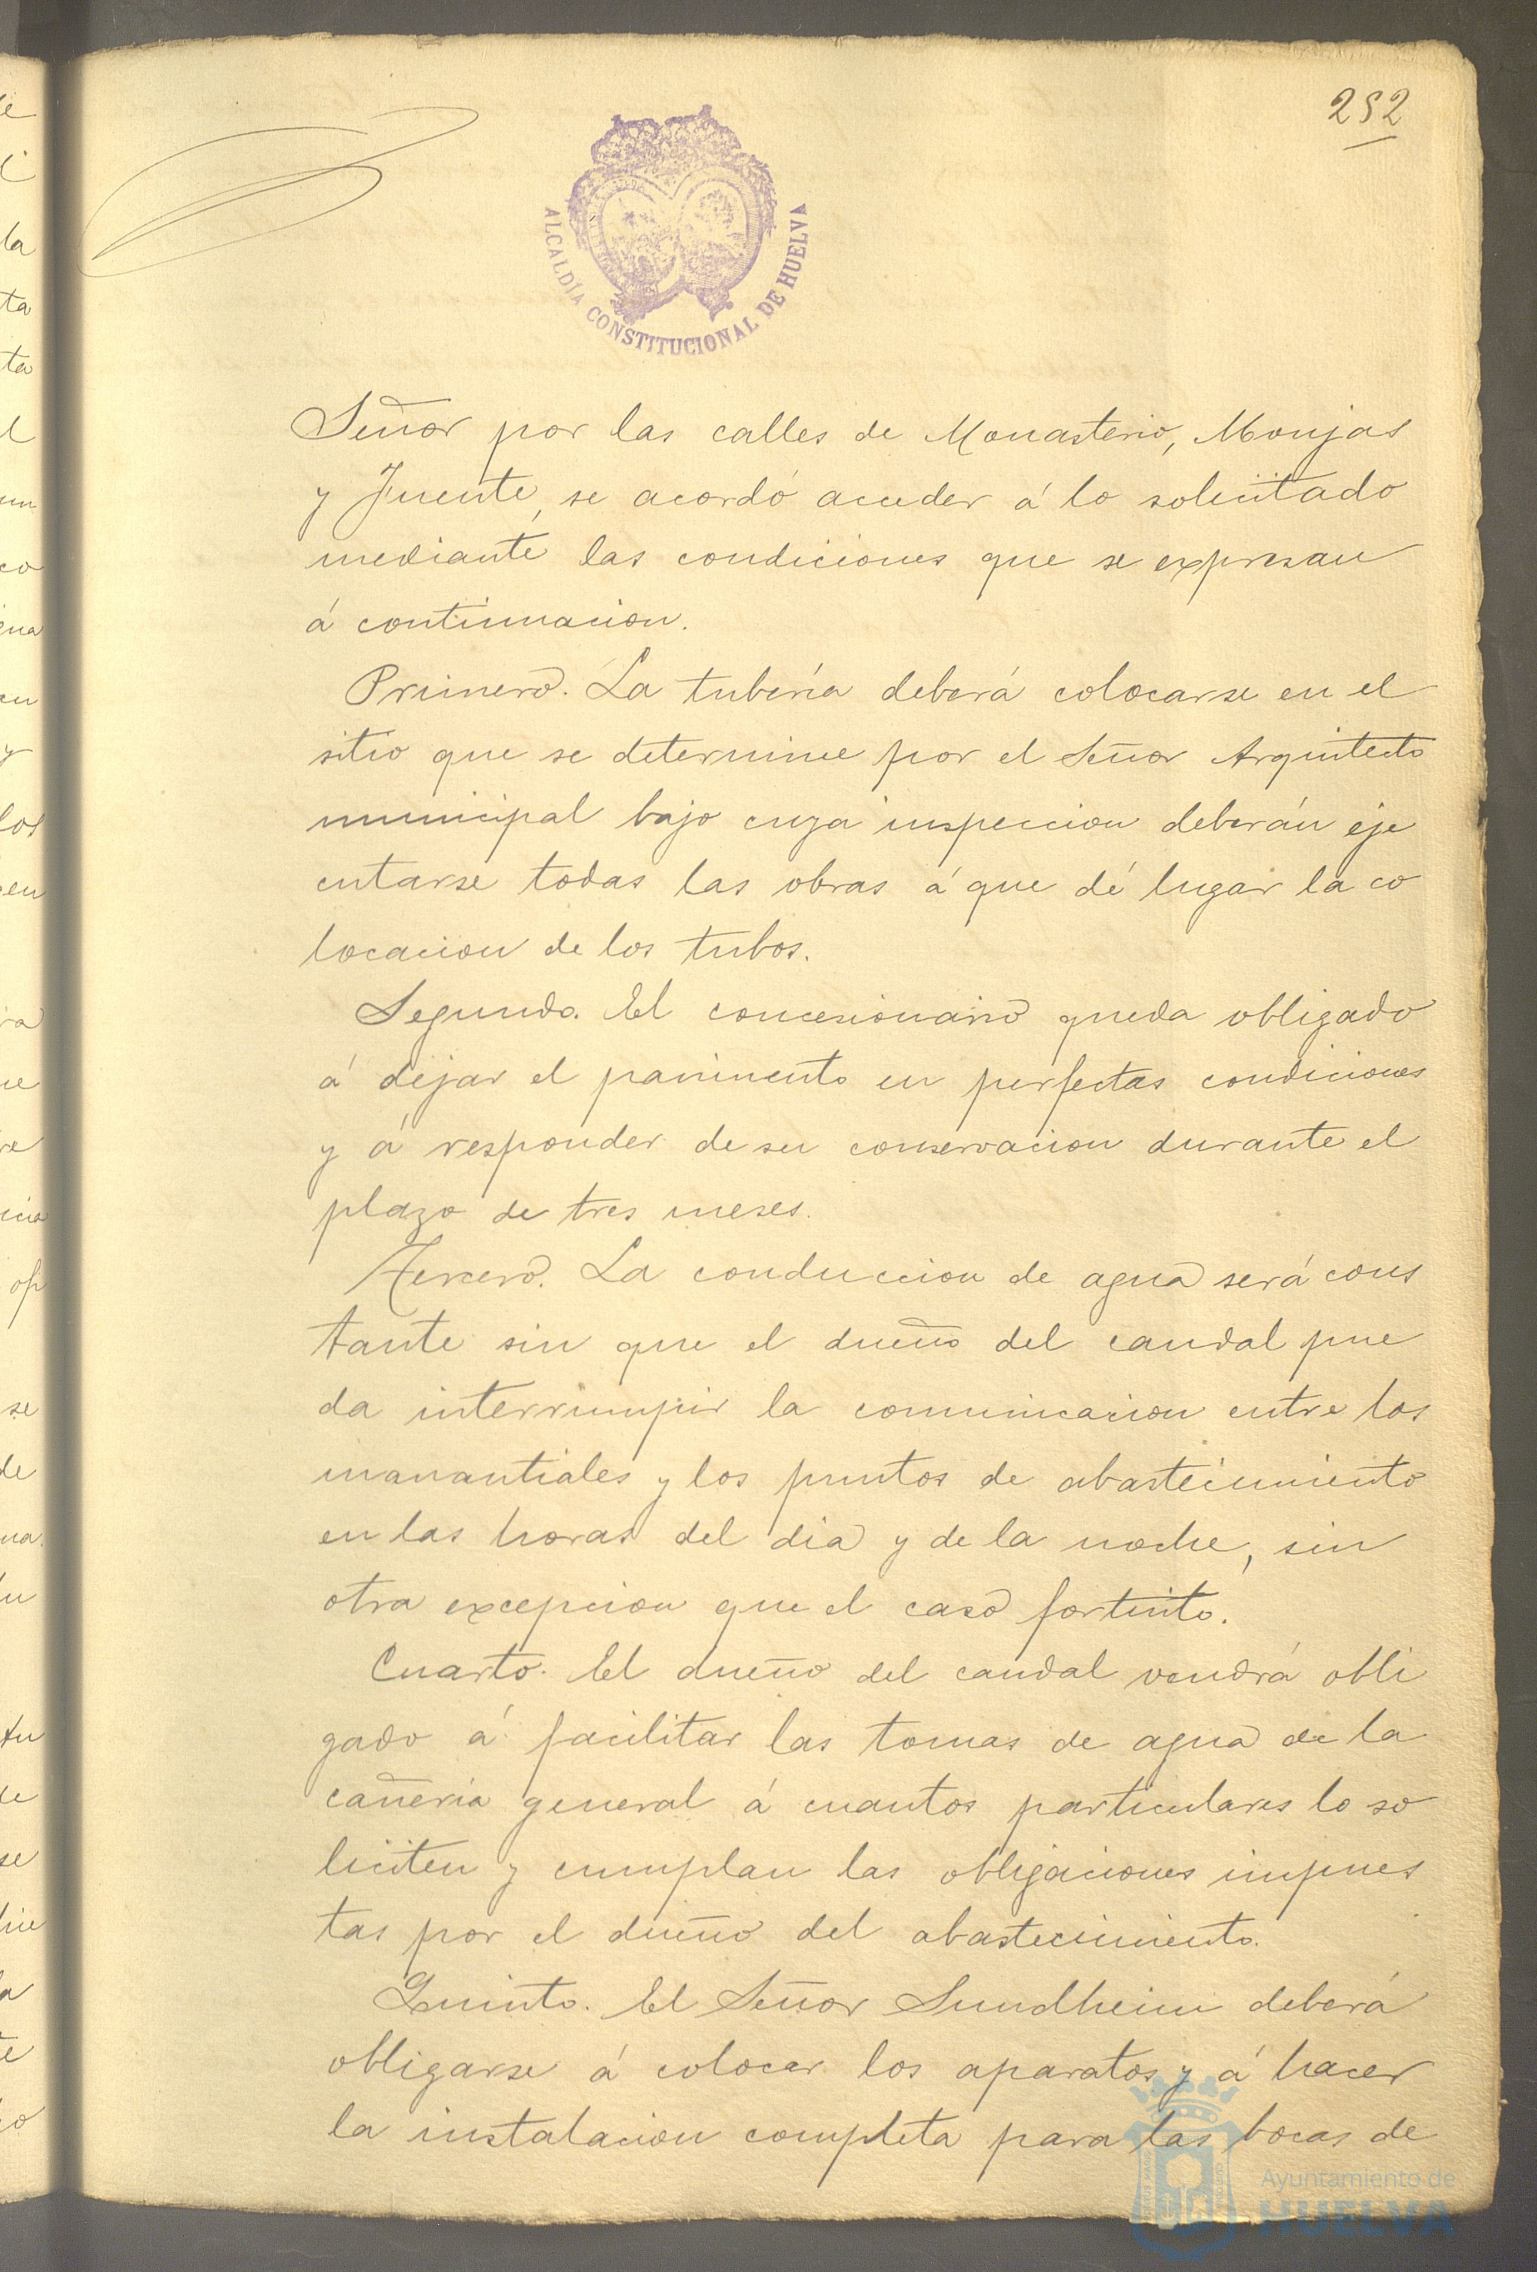 252
ALCALDÍA CONSTITUCIONAL DE HUELVA
Señor por las calles de Monasterio, Monjas
y Fuente, se acordó acceder á lo solicitado
mediante las condiciones que se expresan
á continuacion.
Primero. La tubería deberá colocarse en el
sitio que se determine por el Señor Arquitecto
municipal bajo cuya inspeccion deberán eje
cutarse todas las obras á que dé lugar la co
locacion de los tubos.
Segundo. El concesionario queda obligado
á dejar el pavimento en perfectas condiciones
y á responder de su conservacion durante el
plazo de tres meses.
Tercero. La conduccion de agua será cons
tante sin que el dueño del caudal pue
da interrumpir la comunicacion entre los
manantiales y los puntos de abastecimiento
en las horas del dia y de la noche, sin
otra excepcion que el caso fortuito.
Cuarto. El dueño del caudal vendrá obli
gado á facilitar las tomas de agua de la
cañeria general á cuantos particulares lo so
liciten y cumplan las obligaciones impues
tas por el dueño del abastecimiento.
Quinto. El Señor Sundheim deberá
obligarse á colocar los aparatos y á hacer
la instalacion completa para las bocas de
Ayuntamiento de
HUELVA